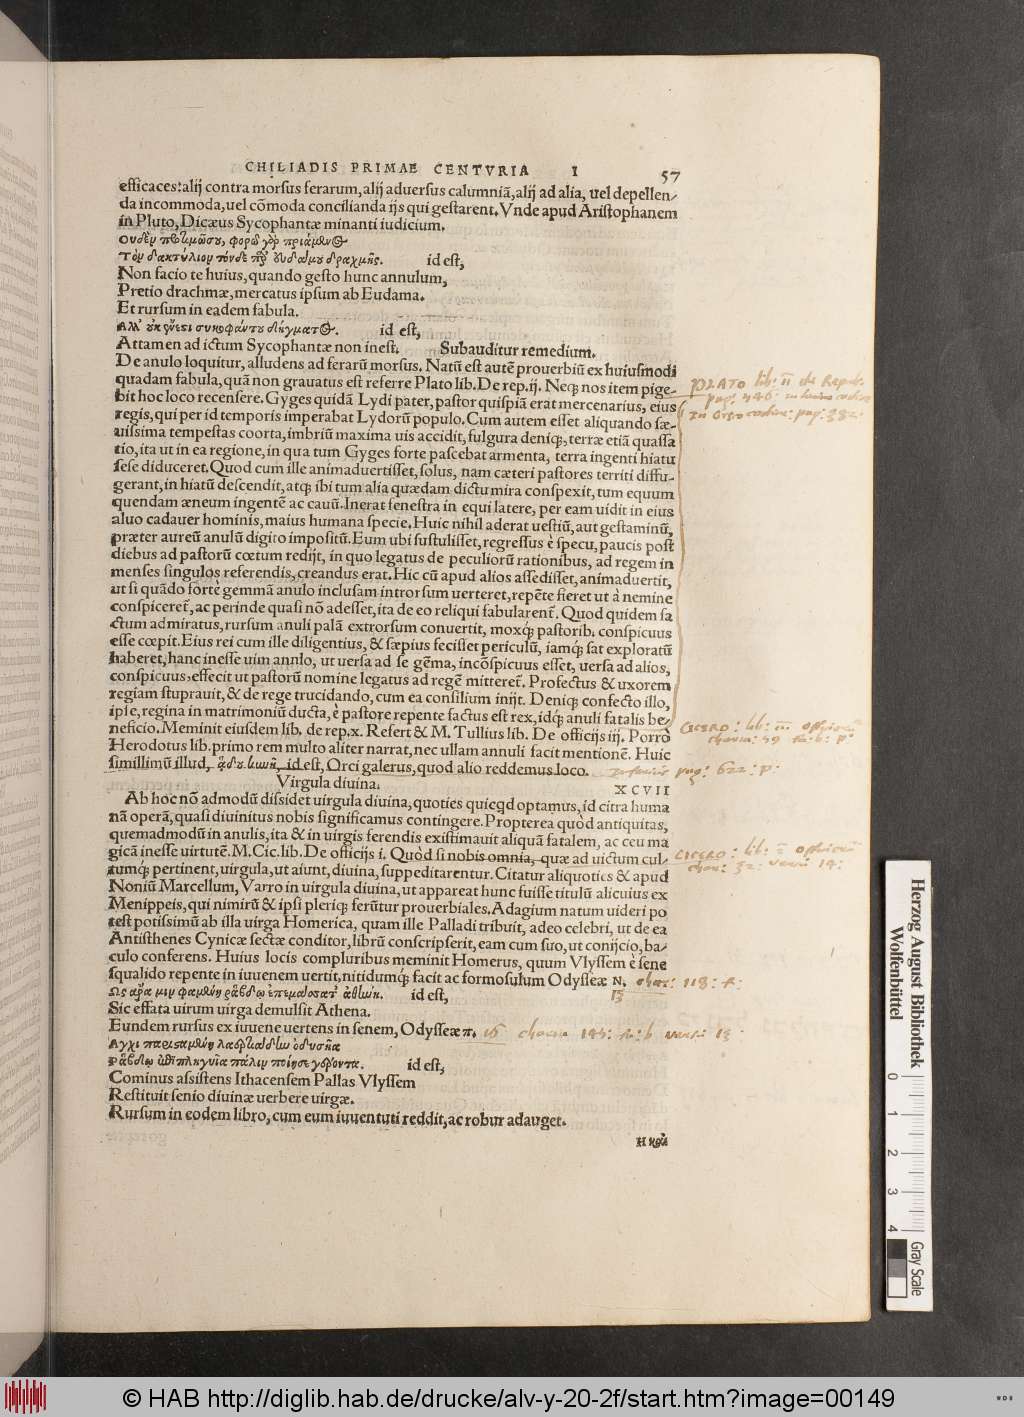 CHILIADIS PRIMAE CENTVRIA I 57
efficaces: alij contra morsus ferarum, alij aduersus calumniã, alij ad alia, uel depellen/
da incommoda, uel cõmoda concilianda ijs qui gestarent. Vnde apud Aristophanem
in Pluto, Dicæus Sycophantæ minanti iudicium.
id est,
Non facio te huius, quando gesto hunc annulum,
Pretio drachmæ, mercatus ipsum ab Eudama.
Et rursum in eadem fabula.
id est,
Attamen ad ictum Sycophantæ non inest. Subauditur remedium.
De anulo loquitur, alludens ad ferarũ morsus. Natũ est autẽ prouerbiũ ex huiusmodi
quadam fabula, quã non grauatus est referre Plato lib. De rep. ij. Neq; nos item pige-
bit hoc loco recensere. Gyges quidã Lydi pater, pastor quispiã erat mercenarius, eius
regis, qui per id temporis imperabat Lydorũ populo. Cum autem esset aliquando sæ-
uissima tempestas coorta, imbriũ maxima uis accidit, fulgura deniq;, terræ etiã quassa
tio, ita ut in ea regione, in qua tum Gyges forte pascebat armenta, terra ingenti hiatu
sese diduceret. Quod cum ille animaduertisset, solus, nam cæteri pastores territi diffu-
gerant, in hiatũ descendit, atq; ibi tum alia quædam dictu mira conspexit, tum equum
quendam æneum ingentẽ ac cauũ. Inerat fenestra in equi latere, per eam uidit in eius
aluo cadauer hominis, maius humana specie. Huic nihil aderat uestiũ, aut gestaminũ,
præter aureũ anulũ digito impositũ. Eum ubi sustulisset, regressus è specu, paucis post
diebus ad pastorũ cœtum redijt, in quo legatus de peculiorũ rationibus, ad regem in
menses singulos referendis, creandus erat. Hic cũ apud alios assedisset, animaduertit,
ut si quãdo fortè gemmã anulo inclusam introrsum uerteret, repẽte fieret ut à nemine
conspiceret̃, ac perinde quasi nõ adesset, ita de eo reliqui fabularent̃. Quod quidem fa
ctum admiratus, rursum anuli palã extrorsum conuertit, moxq́; pastorib. conspicuus
esse cœpit. Eius rei cum ille diligentius, & sæpius fecisset periculũ, iamq́; sat exploratũ
haberet, hanc inesse uim annlo, ut uersa ad se gẽma, incõspicuus esset, uersa ad alios,
conspicuus, effecit ut pastorũ nomine legatus ad regẽ mitteret̃. Profectus & uxorem
regiam stuprauit, & de rege trucidando, cum ea consilium inijt. Deniq; confecto illo,
ipse, regina in matrimoniũ ducta, è pastore repente factus est rex, idq́; anuli fatalis be/
neficio. Meminit eiusdem lib. de rep. x. Refert & M. Tullius lib. De officijs iij. Porrò
Herodotus lib. primo rem multo aliter narrat, nec ullam annuli facit mentionẽ. Huic
simillimũ illud, ἄδου κυνῆ, id est, Orci galerus, quod alio reddemus loco.
Virgula diuina. XCVII
Ab hoc nõ admodũ dissidet uirgula diuina, quoties quicqd optamus, id citra huma
nã operã, quasi diuinitus nobis significamus contingere. Propterea quòd antiquitas,
quemadmodũ in anulis, ita & in uirgis ferendis existimauit aliquã fatalem, ac ceu ma
gicã inesse uirtutẽ. M. Cic. lib. De officijs i. Quòd si nobis omnia, quæ ad uictum cul-
tumq́; pertinent, uirgula, ut aiunt, diuina, suppeditarentur. Citatur aliquoties & apud
Noniũ Marcellum, Varro in uirgula diuina, ut appareat hunc fuisse titulũ alicuius ex
Menippeis, qui nimirũ & ipsi pleriq; ferũtur prouerbiales. Adagium natum uideri po
test potissimũ ab illa uirga Homerica, quam ille Palladi tribuit, adeo celebri, ut de ea
Antisthenes Cynicæ sectæ conditor, librũ conscripserit, eam cum suo, ut conijcio, ba/
culo conferens. Huius locis compluribus meminit Homerus, quum Vlyssem è sene
squalido repente in iuuenem uertit, nitidumq́; facit ac formosulum Odysseæ Ν.
13
id est,
Sic effata uirum uirga demulsit Athena.
Eundem rursus ex iuuene uertens in senem, Odysseæ π.
id est,
Cominus assistens Ithacensem Pallas Vlyssem
Restituit senio diuinæ uerbere uirgæ.
Rursum in eodem libro, cum eum iuuentuti reddit, ac robur adauget.
PLATO lib: II de Repub.
CICERO: lib: III officiorũ
pag: 622: P:
CICERO: lib: I officiorũ
char: 118: f:
16
Herzog August Bibliothek
Wolfenbüttel
0 1 2 3 4
Gray Scale
© HAB http://diglib.hab.de/drucke/alv-y-20-2f/start.htm?image=00149